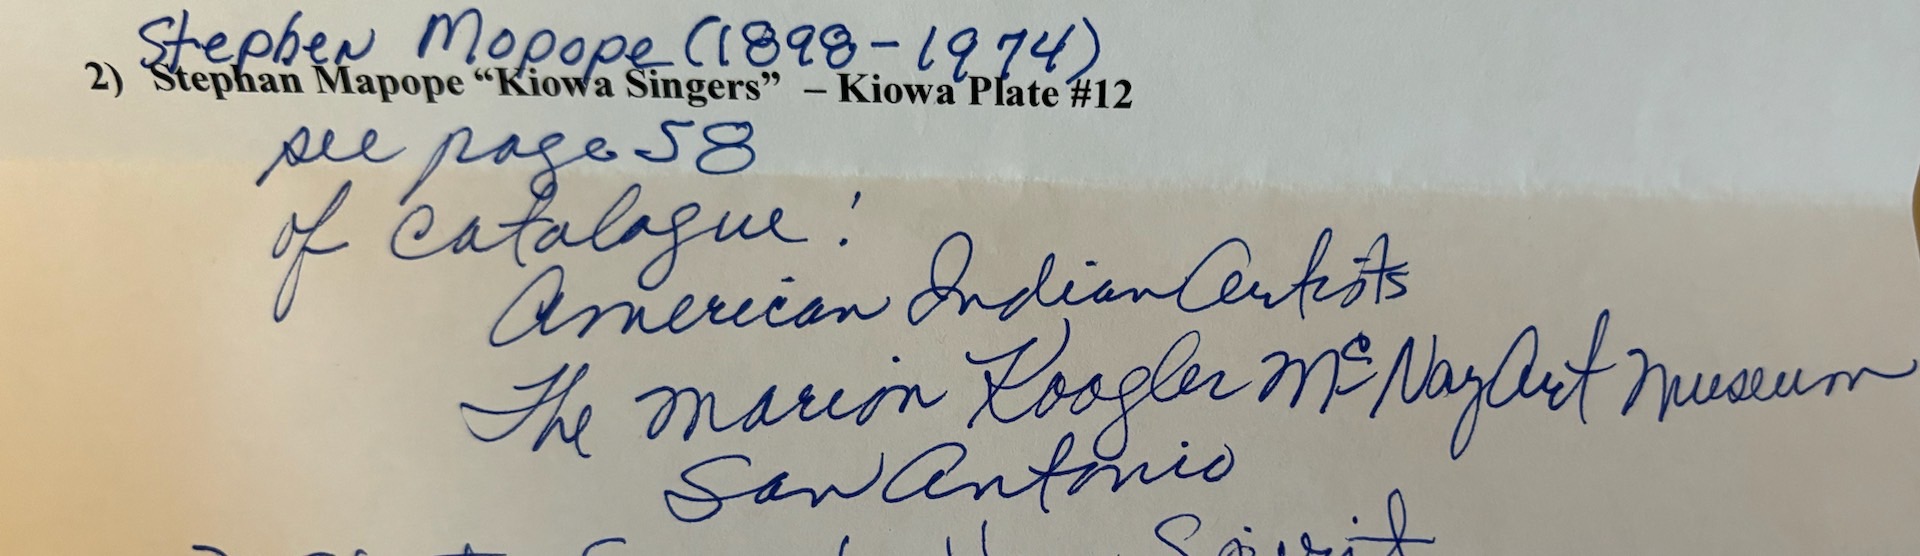 Stephen Mopope (1898-1974)
2) Stephan Mapope “Kiowa Singers” – Kiowa Plate #12
see page 58
of catalogue:
American Indian Artists
The Marion Koogler McNay Art Museum
San Antonio
Spirit